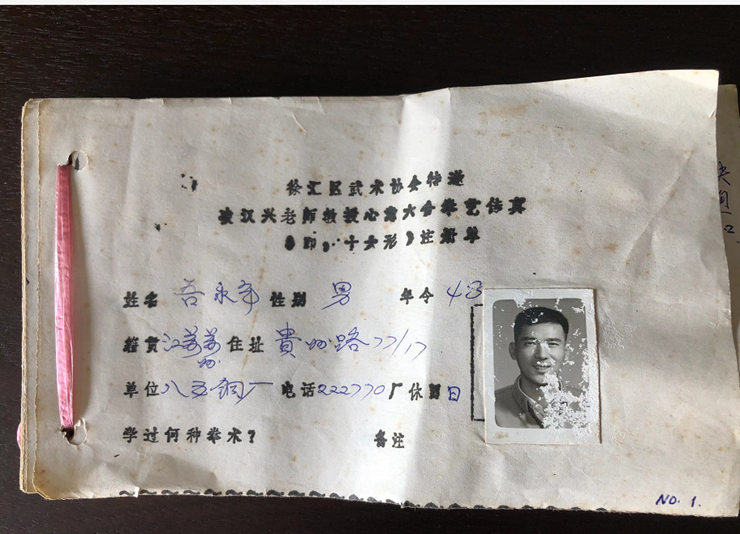 徐汇区武术协会特邀
凌汉兴老师教授心意大会拳艺传真
（即，十大形）注册单
姓名 吾永年 性别 男 年令 43
籍贯 江苏 苏州 住址 貴州路77/17
单位 八五钢厂 电话222770 厂休 日
学过何种拳术？ 备注
NO. 1.